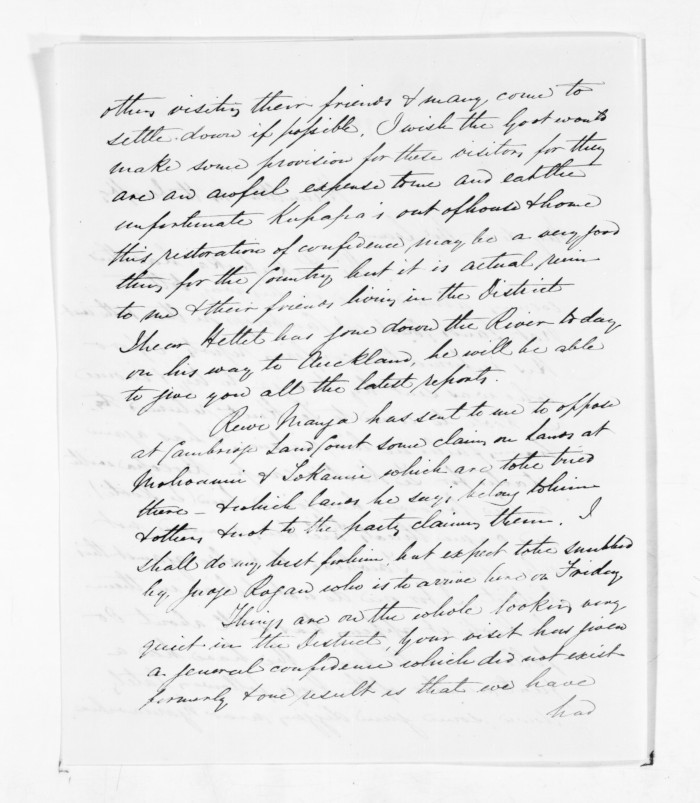 others visiting their friends & many come to
settle down if possible, I wish the Govt would
make some provision for these visitors for they
are an awful expense to me and eat the
unfortunate Kupapa's out of house & home
this restoration of confidence may be a very good
thing for the Country but it is actual ruin
to me & their friends living in the District
I hear Hettet has gone down the River to day
on his way to Auckland, he will be able
to give you all the latest reports.
Rewi Manga has sent to me to oppose
at Cambridge Land Court some claim on Lands at
Mohoanui & Tokanui which are to be tried
there - & which lands he says belong to him
& others & not to the party claiming them. I
shall do my best for him but expect to be snubbed
by Judge Rogan who is to arrive here on Friday
Things are on the whole looking very
quiet in the District, your visit has given
a general confidence which did not exist
formerly & one result is that we have
had